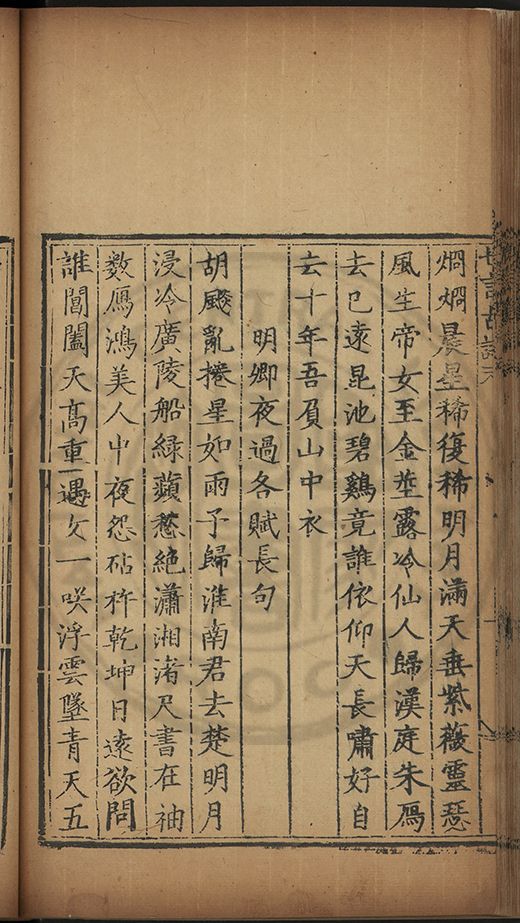 烱烱晨星稀復稀明月滿天垂紫薇靈瑟
風生帝女至金莖露冷仙人歸漢庭朱鴈
去已遠昆池碧鷄竟誰依仰天長嘯好自
去十年吾負山中衣
明卿夜過各賦長句
胡颷亂捲星如雨予歸淮南君去楚明月
浸冷廣陵船綠蘋愁絶瀟湘渚尺書在袖
數鴈鴻美人中夜怨砧杵乾坤日遠欲問
誰閶闔天高重一遇攵一咲浮雲墜青天五